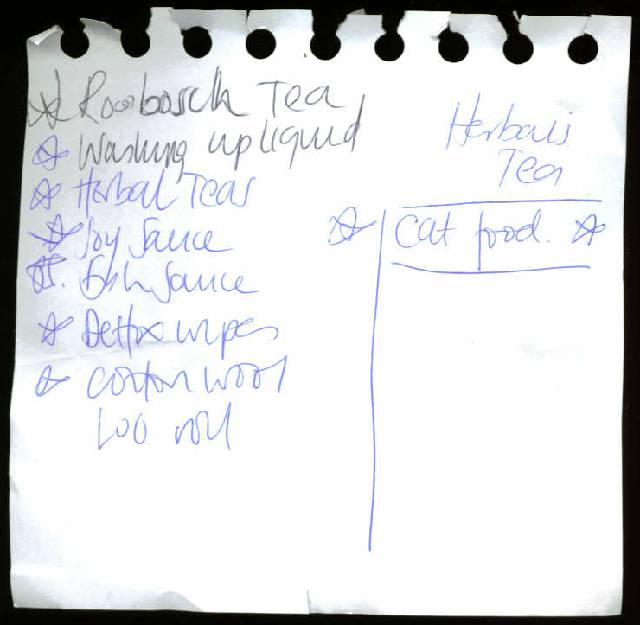 Roobosch Tea
Washing up liquid
Herbal Teas
Soy Sauce
Fish Sauce
Dettox wipes
Cotton wool
Loo roll
Herbals
Tea
Cat food.